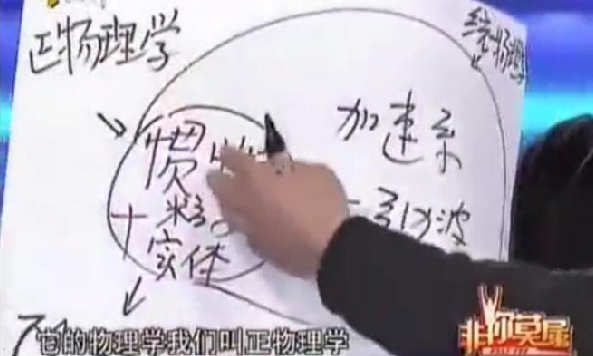 正物理学
加速系
惯
引力波
粒子
实体
它的物理学我们叫正物理学
非你莫属